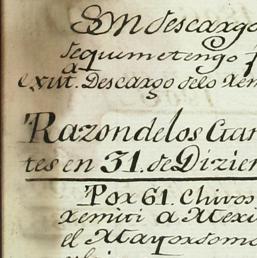 En descargo
de que me tengo
a
exiit. Descargo delo Rem
Razon de los Gan
tes en 31. de Dizien
Por 61. Chivos
Remiti a Mexi
el Mayordomo